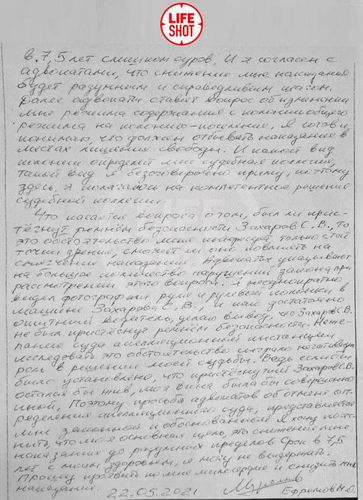 LIFE
SHOT
в 7,5 лет слишком суров. И я согласен с
адвокатами, что снижение мне наказания
будет разумным и справедливым шагом.
Далее адвокаты ставят вопрос об изменении
мне режима содержания с колонии общего
режима на колонию-поселение. Я готов и
понимаю, что должен отбывать наказание в
местах лишения свободы. И какой вид
колонии определит мне судебная коллегия,
такой вид я безоговорочно приму, поэтому
здесь я полагаюсь на компетентное решение
судебной коллегии.
Что касается вопроса о том, был ли прис-
тёгнут ремнём безопасности Захаров С.В., то
это обстоятельство меня интересует только с той
точки зрения, сможет ли оно повлиять на
смягчение наказания. Адвокаты указывают
на большое количество нарушений закона при
рассмотрении этого вопроса. Я неоднократно
видел фотографии руля и рулевой колонки в
машине Захарова С.В. и как достаточно
опытный водитель, делаю вывод, что Захаров С.В.
не был пристёгнут ремнём безопасности.
исследовать это обстоятельство
роль в решении моей судьбы. Ведь если бы
было установлено, что пристёгнутый Захаров С.В.
остался бы жив, моя вина была бы совершенно
иной. Поэтому просьба адвокатов об отмене оп-
ределения апелляционного суда, представляется
мне законной и обоснованной. Я хочу
что моя основная цель, это снижение
наказания до разумных пределов. Срок в 7,5
лет с моим здоровьем, я могу не выдержать.
Прошу проявить ко мне милосердие и снизить мне
наказание.
22.05.2021 Ефремов